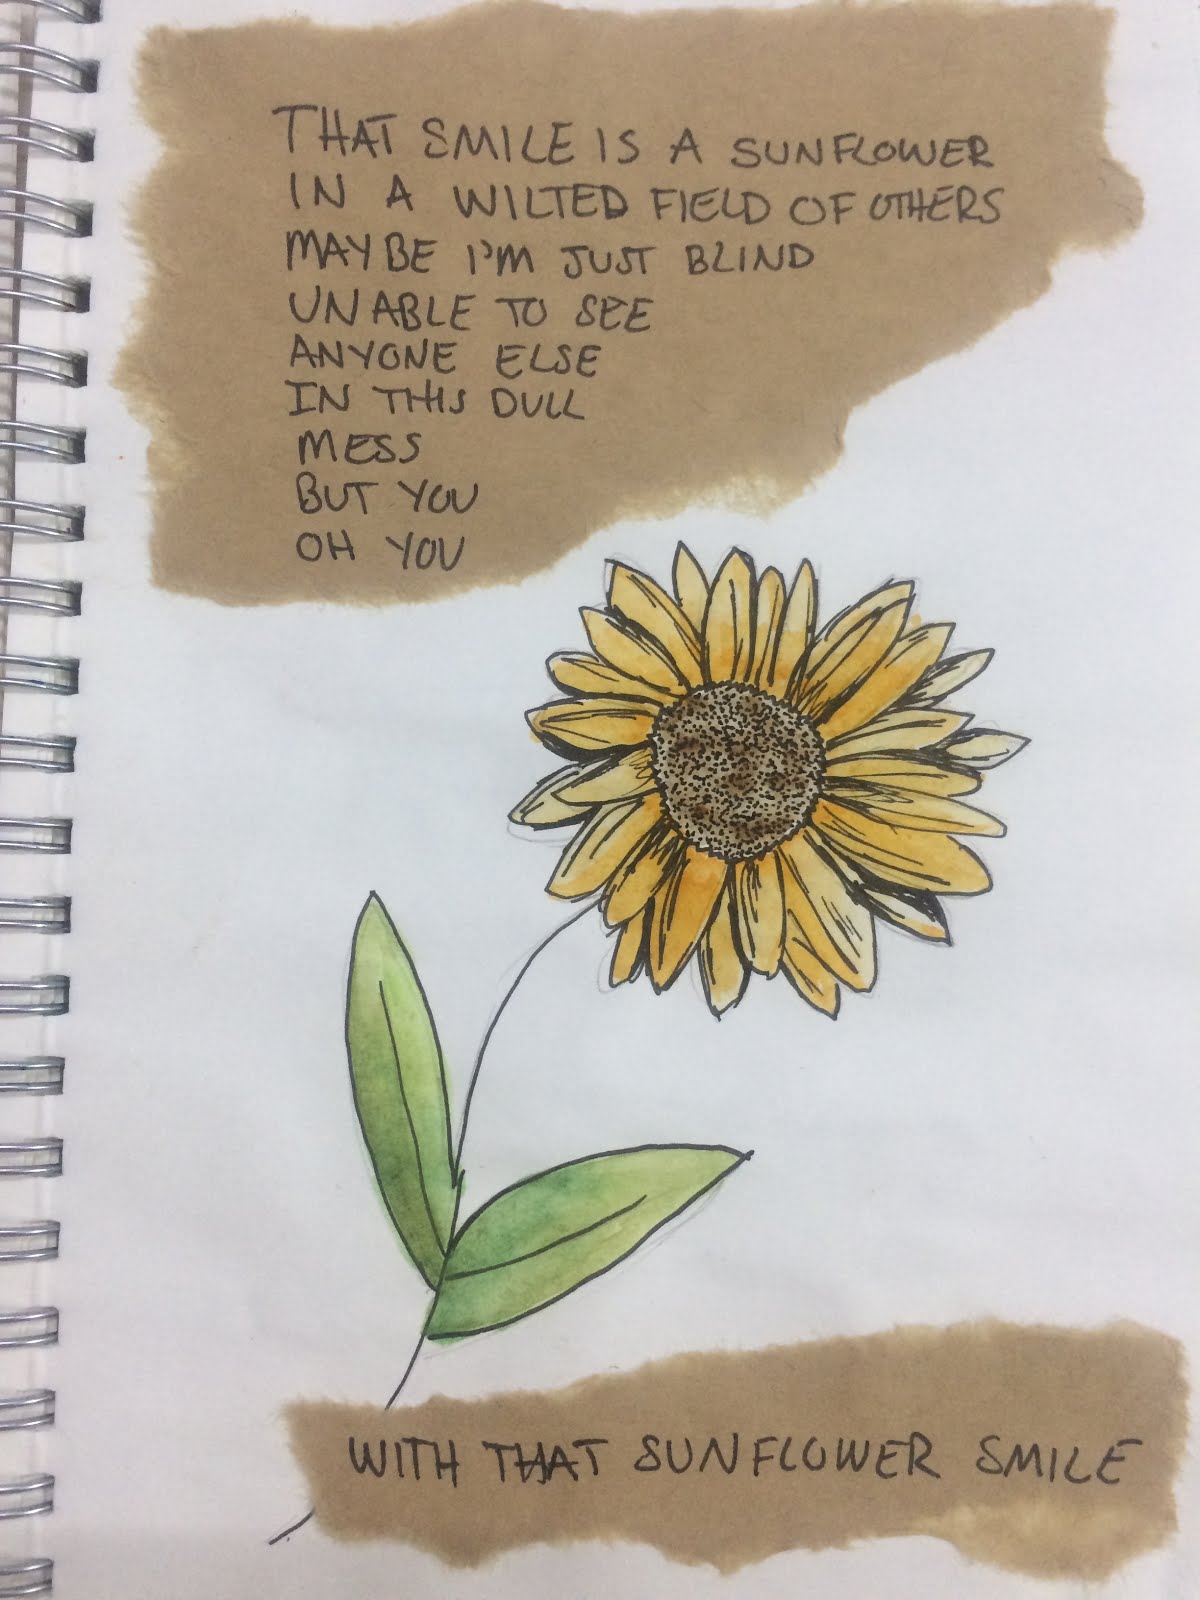 THAT SMILE IS A SUNFLOWER
IN A WILTED FIELD OF OTHERS
MAYBE I'M JUST BLIND
UNABLE TO SEE
ANYONE ELSE
IN THIS DULL
MESS
BUT YOU
OH YOU
WITH THAT SUNFLOWER SMILE